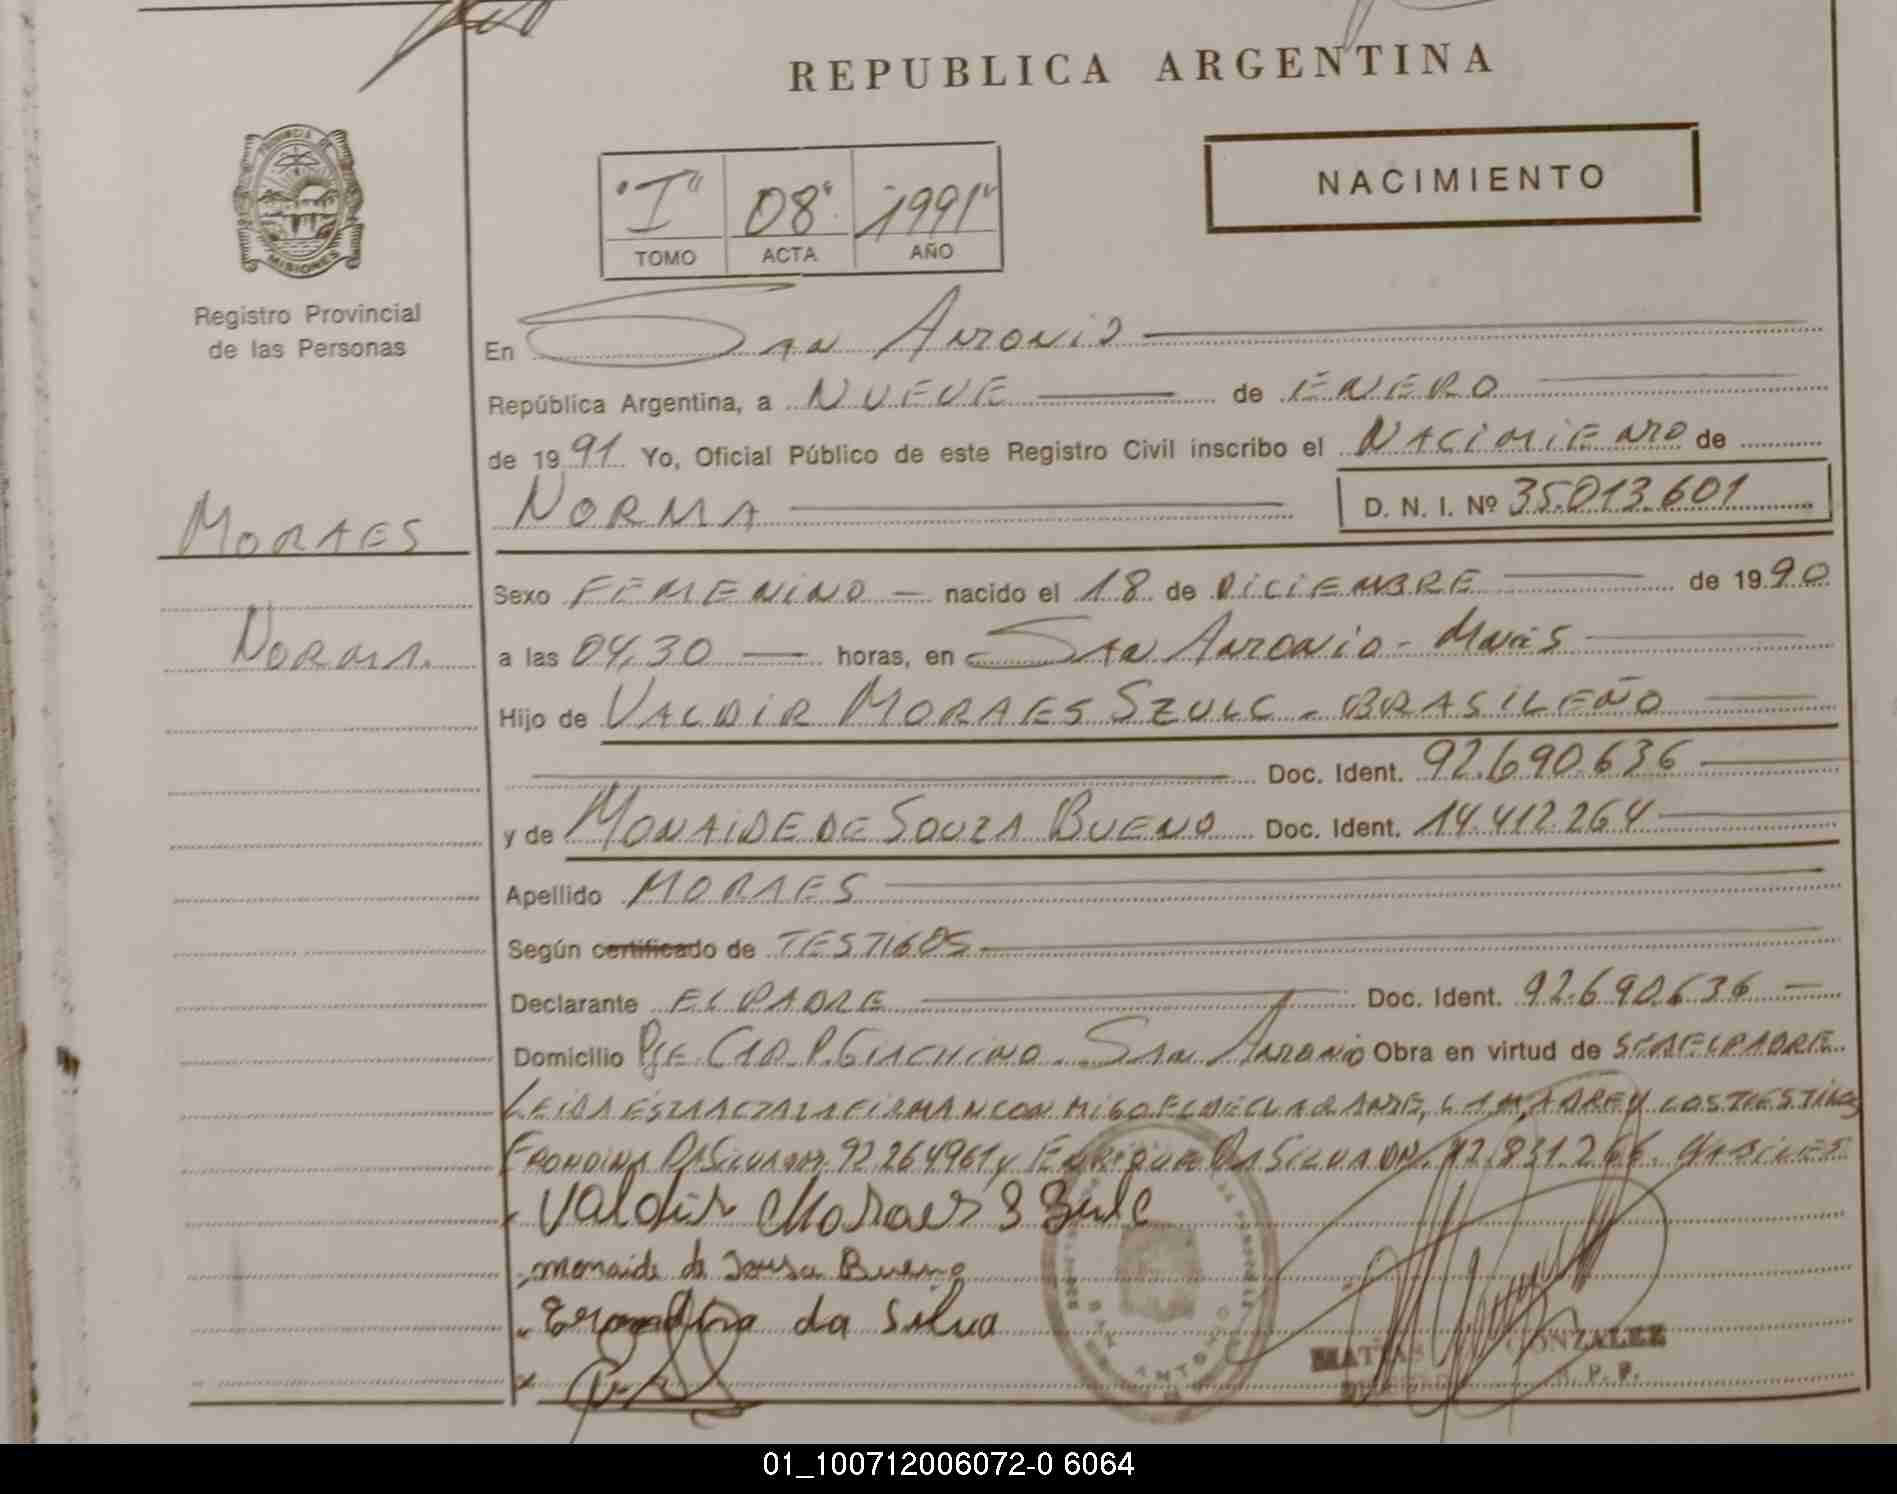 REPUBLICA ARGENTINA
PROVINCIA DE
MISIONES
Registro Provincial
de las Personas
"I" 08" 1991"
TOMO ACTA AÑO
NACIMIENTO
En San Antonio
República Argentina, a NUEVE de ENERO
de 1991 Yo, Oficial Público de este Registro Civil inscribo el NACIMIENTO de
NORMA D. N. I. Nº 35.013.601
MORAES
NORMA.
Sexo FEMENINO nacido el 18 de DICIEMBRE de 1990
a las 04,30 horas, en SAN ANTONIO - Mnes
Hijo de VALDIR MORAES SZULC - BRASILEÑO
Doc. Ident. 92.690.636
y de MONAIDE DE SOUZA BUENO Doc. Ident. 14.412.264
Apellido MORAES
Según certificado de TESTIGOS
Declarante EL PADRE Doc. Ident. 92.690.636
Domicilio Pje. CAP. P. GIACHINO - SAN ANTONIO Obra en virtud de SER EL PADRE
LEIDA ESTA ACTA LA FIRMAN CONMIGO EL DECLARANTE, LA MADRE Y LOS TESTIGOS
DA SILVA 92.264961 y ENRIQUE DA SILVA DNI. 92.831.266. HABILES
Valdir Moraes Szulc
Monaide de Sousa Bueno
da Silva
SAN ANTONIO
MATIAS GONZALEZ
01_100712006072-0 6064